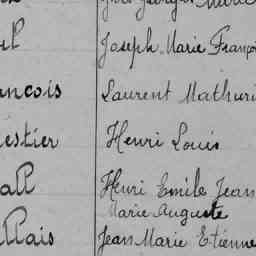 Joseph Marie Franço
ançois Laurent Mathuri
estier Henri Louis
all Henri Emile Jean
Marie Auguste
llais Jean Marie Etienne